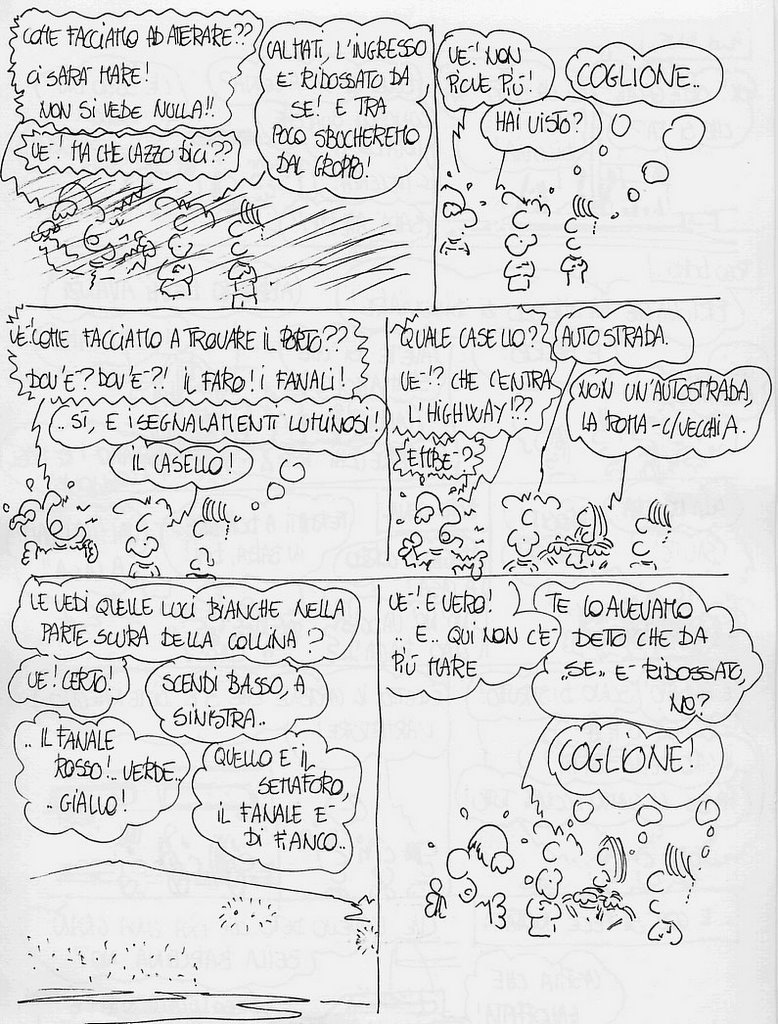 COME FACCIAMO AD ATERARE??
CI SARA' MARE!
NON SI VEDE NULLA!!
UE'! MA CHE CAZZO DICI??
CALMATI, L'INGRESSO
E' RIDOSSATO DA
SE! E TRA
POCO SBUCHEREMO
DAL GROPPO!
UE'! NON
PIOVE PIÙ!
COGLIONE..
HAI VISTO?
UE'! COME FACCIAMO A TROVARE IL PORTO??
DOV'E'? DOV'E'?! IL FARO! I FANALI!
..SÌ, E I SEGNALAMENTI LUMINOSI!
IL CASELLO!
QUALE CASELLO?
UE'!? CHE C'ENTRA
L'HIGHWAY!??
EMBE'?
AUTOSTRADA.
NON UN'AUTOSTRADA,
LA ROMA-C/VECCHIA.
LE VEDI QUELLE LUCI BIANCHE NELLA
PARTE SCURA DELLA COLLINA?
UE'! CERTO!
SCENDI BASSO, A
SINISTRA..
.. IL FANALE
ROSSO!.. VERDE..
.. GIALLO!
QUELLO E' IL
SEMAFORO,
IL FANALE E'
DI FIANCO..
UE'! E VERO!
.. E.. QUI NON C'E'
PIÙ MARE
TE LO AVEVAMO
DETTO CHE DA
"SE" E' RIDOSSATO,
NO?
COGLIONE!